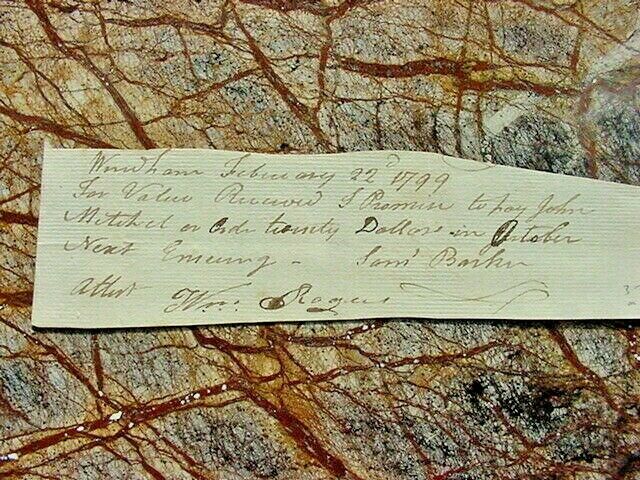 Windham February 22d 1799
For Value Received I Promise to pay John
Mitchel or Order twenty Dollars in October
Next Ensuing - Saml Barker
Attest Wm. Rogers